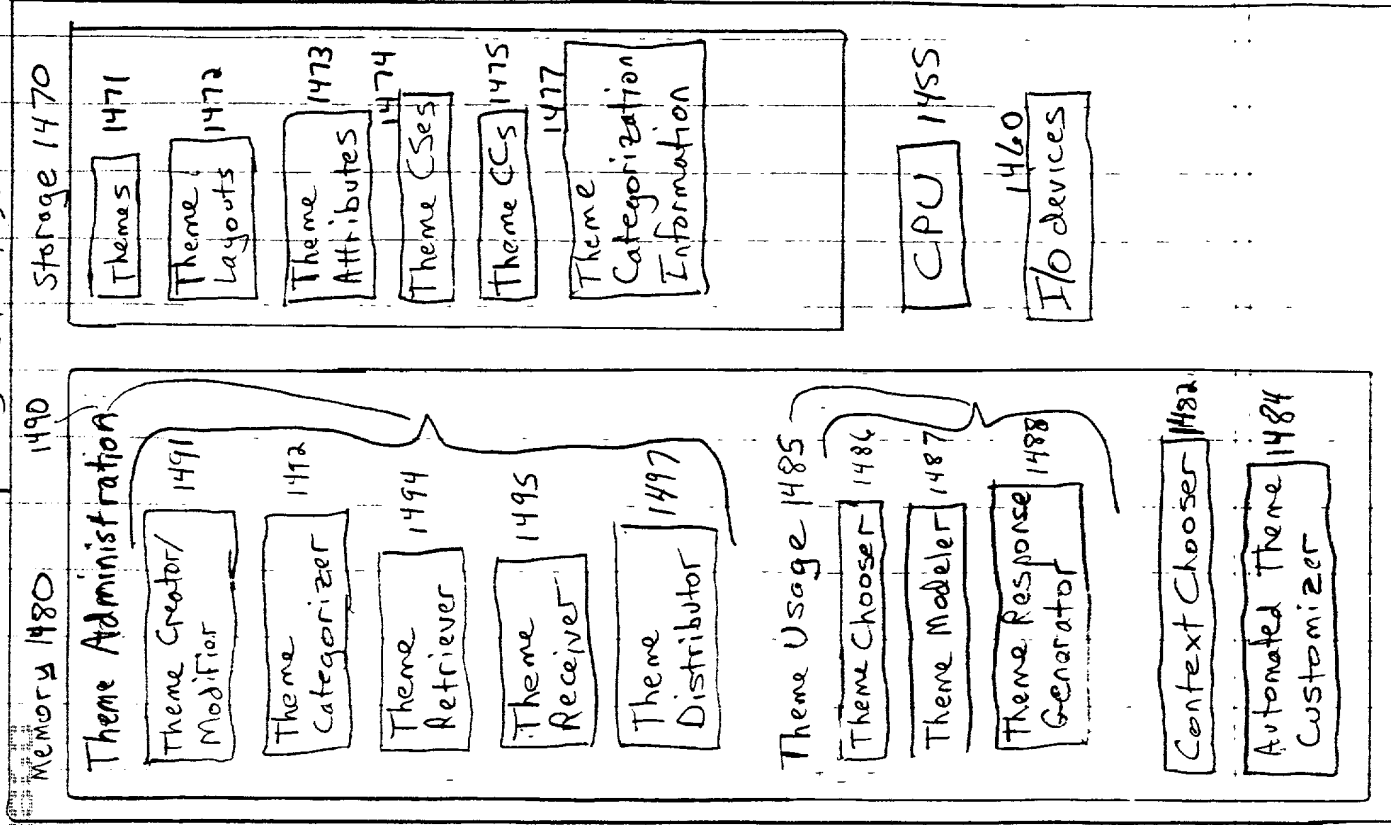 Memory 1480
1490
Theme Administration
Theme Creator/
Modifier
1491
Theme
Categorizer
1492
Theme
Retriever
1494
Theme
Receiver
1495
Theme
Distributor
1497
Theme Usage 1485
Theme Chooser
1486
Theme Modeler
1487
Theme Response
Generator
1488
Context Chooser
1482
Automated Theme
Customizer
1484
Storage 1470
Themes
1471
Theme
Layouts
1472
Theme
Attributes
1473
Theme CSes
1474
Theme CCs
1475
Theme
Categorization
Information
1477
CPU
1455
I/O devices
1460